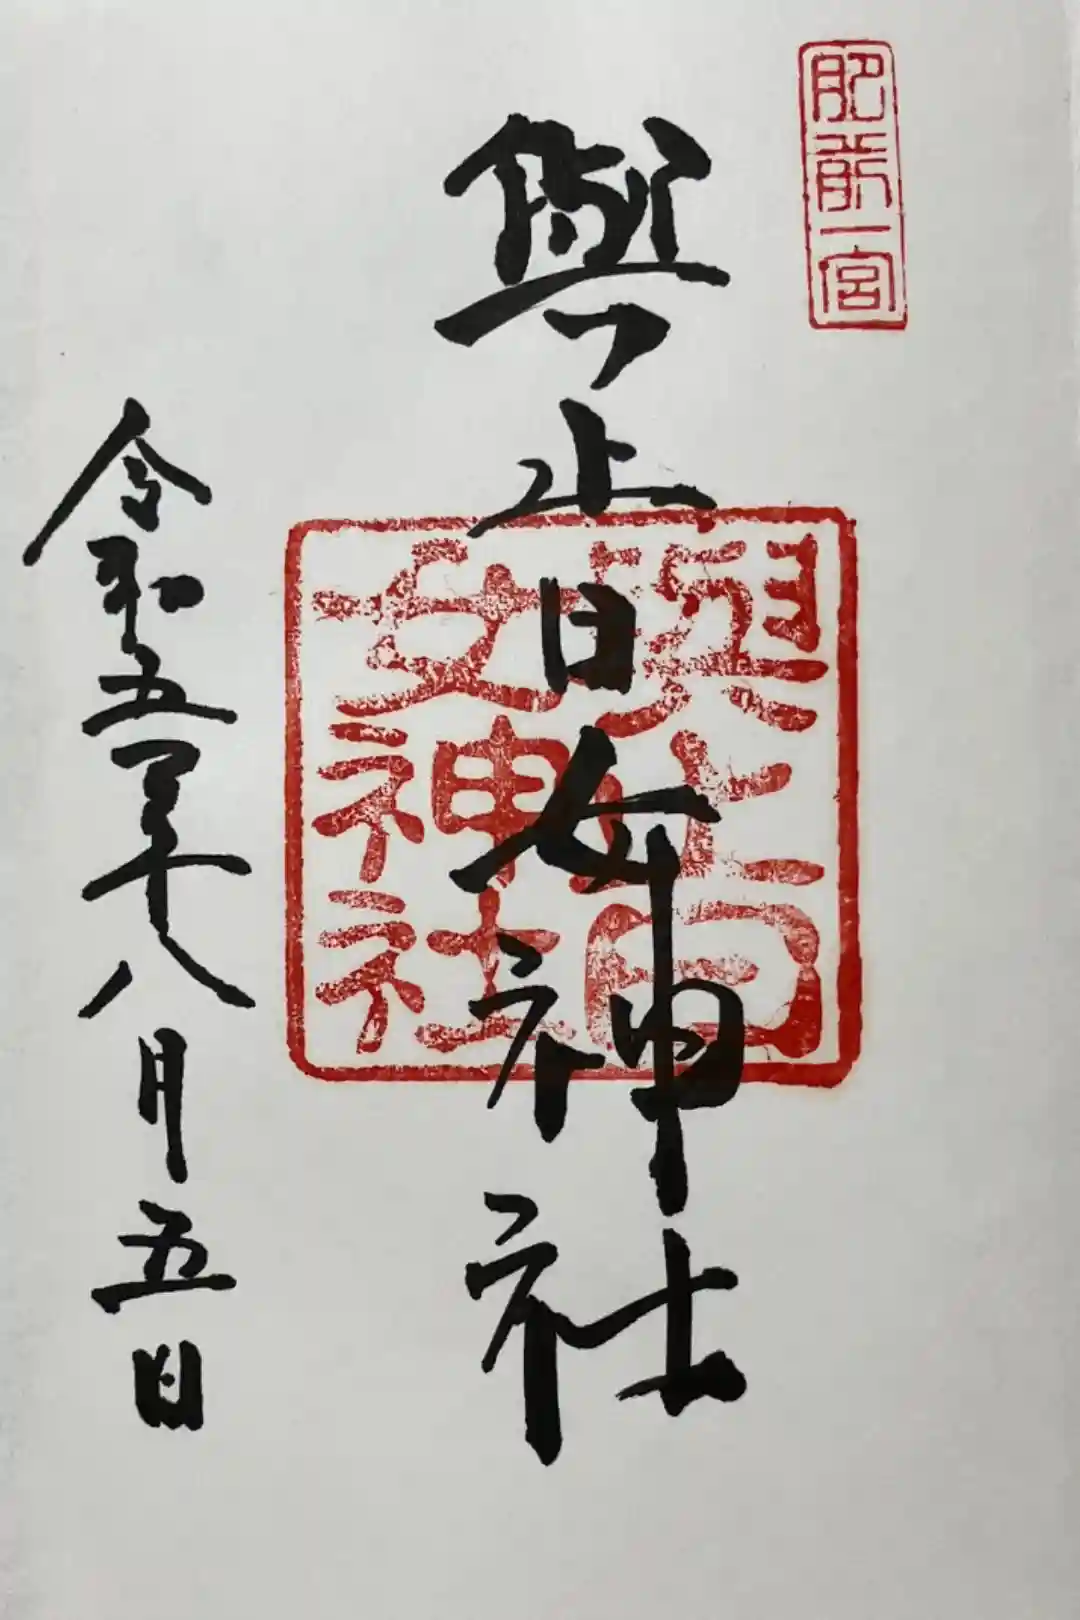 肥前一宮
與止日女神社
與止日
女神社
令和五年八月五日